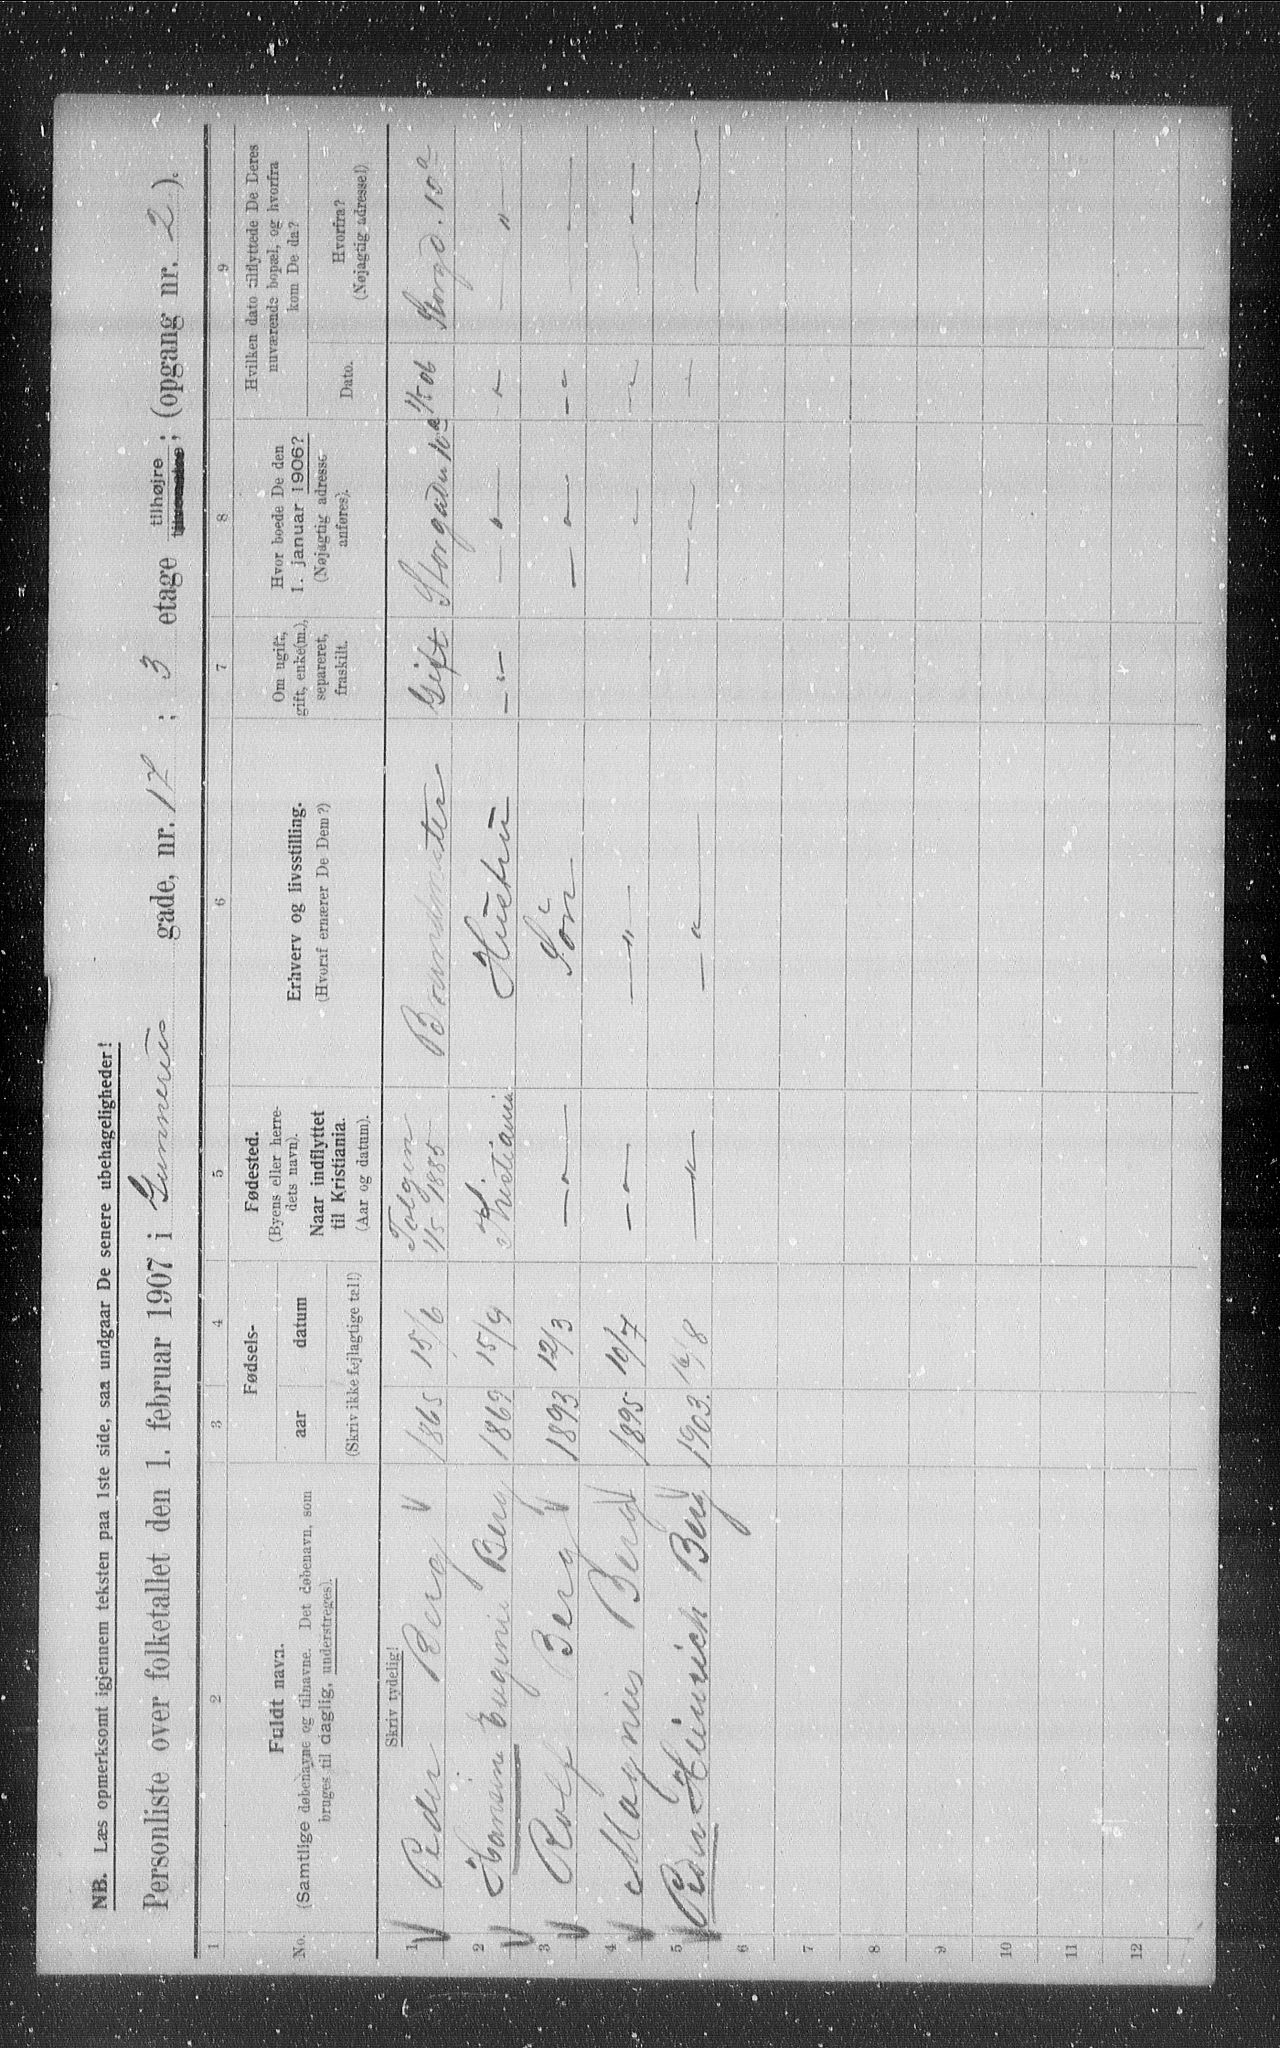 NB. Læs opmerksomt igjennem teksten paa 1ste side, saa undgaar De senere ubehageligheder!
Personliste over folketallet den 1. februar 1907 i Gunnerus gade, nr. 17 ; 3 etage tilhøjre ; (opgang nr. 2 ).
1 2 3 4 5 6 7 8 9
No.
Fuldt navn.
(Samtlige døbenavne og tilnavne. Det døbenavn, som
bruges til daglig, understreges).
Fødsels-
aar datum
(Skriv ikke fejlagtige tal!)
Fødested.
(Byens eller herre-
dets navn).
Naar indflyttet
til Kristiania.
(Aar og datum).
Erhverv og livsstilling.
(Hvoraf ernærer De Dem?)
Om ugift,
gift, enke(m.),
separeret,
fraskilt.
Hvor boede De den
1. januar 1906?
(Nøjagtig adresse
anføres).
Hvilken dato tilflyttede De Deres
nuværende bopæl, og hvorfra
kom De da?
Dato.
Hvorfra?
(Nøjagtig adresse!)
Skriv tydelig!
1 Peder Berg 1865 15/6 Tolgen 1/5 1885 Gift Storgaden 10a 1/5 06 Storgd. 10a
2 Hansine Eugenie Berg 1869 15/9 Kristiania Hustru — " — — " — — " — — " —
3 Rolf Berg 1893 12/3 — " — Søn — " — — " — —
4 Magnus Berg 1895 10/7 — " — — " — — " — — " — — " —
5 Peder Heinrich Berg 1903. 16/8 — " — — " — — " — — " — — " —
6
7
8
9
10
11
12